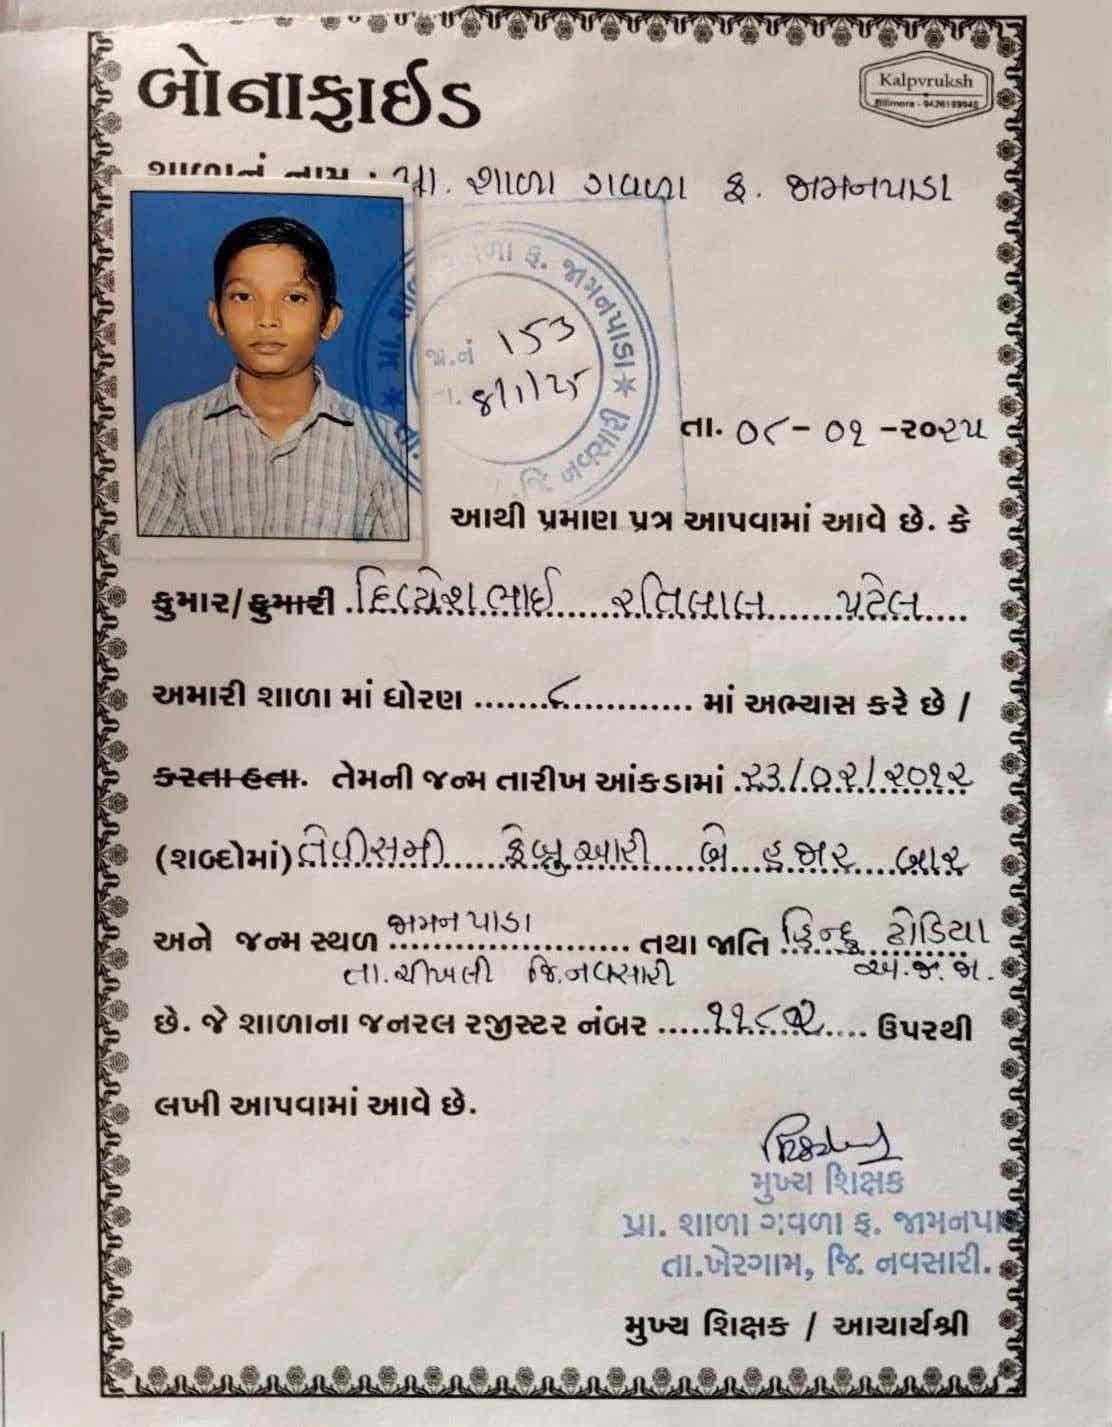 બોનાફાઈડ
Kalpvruksh
Bilimora - 9426189945
શાળાનું નામ : પ્રા. શાળા ગવળા ફ. જામનપાડા
જા.નં 153
તા. 8/1/25
ગવળા ફ. જામનપાડા * જિ. નવસારી
તા. ૦૮ - ૦૧ - ૨૦૨૫
આથી પ્રમાણ પત્ર આપવામાં આવે છે. કે
કુમાર/કુમારી દિવ્યેશભાઈ રતિલાલ પટેલ
અમારી શાળા માં ધોરણ ....... ૮ ............ માં અભ્યાસ કરે છે /
કરતા હતા. તેમની જન્મ તારીખ આંકડામાં ૨૩/૦૨/૨૦૧૨
(શબ્દોમાં) તેવીસમી ફેબ્રુઆરી બે હજાર બાર
અને જન્મ સ્થળ જામનપાડા તથા જાતિ હિન્દુ ઢોડિયા
તા.ચીખલી જિ.નવસારી અ.જ.જા.
છે. જે શાળાના જનરલ રજીસ્ટર નંબર ..... ૧૧૮૨ .... ઉપરથી
લખી આપવામાં આવે છે.
મુખ્ય શિક્ષક
પ્રા. શાળા ગવળા ફ. જામનપા
તા.ખેરગામ, જિ. નવસારી.
મુખ્ય શિક્ષક / આચાર્યશ્રી